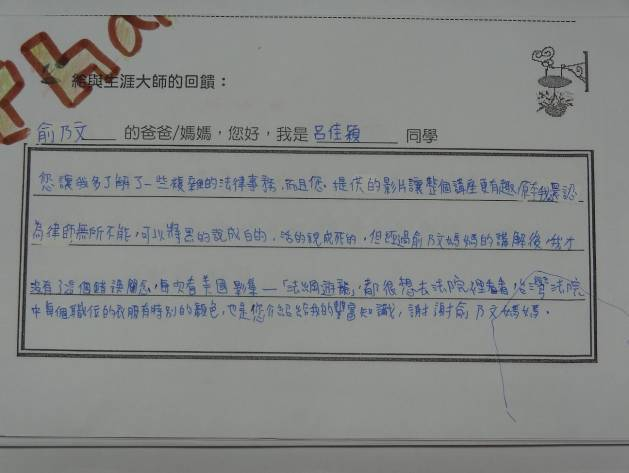 給與生涯大師的回饋：
俞乃文 的爸爸/媽媽，您好，我是 呂佳穎 同學
您讓我多了解了一些複雜的法律事務，而且您提供的影片讓整個講座更有趣，原本我還認
為律師無所不能，可以將黑的說成白的，活的說成死的，但經過俞乃文媽媽的講解後，我才
沒有了這個錯誤觀念，每次看美國影集—「法網遊龍」，都很想去法院裡看看，台灣法院
中每個職位的衣服有特別的顏色，也是您介紹給我的豐富知識，謝謝俞乃文媽媽。